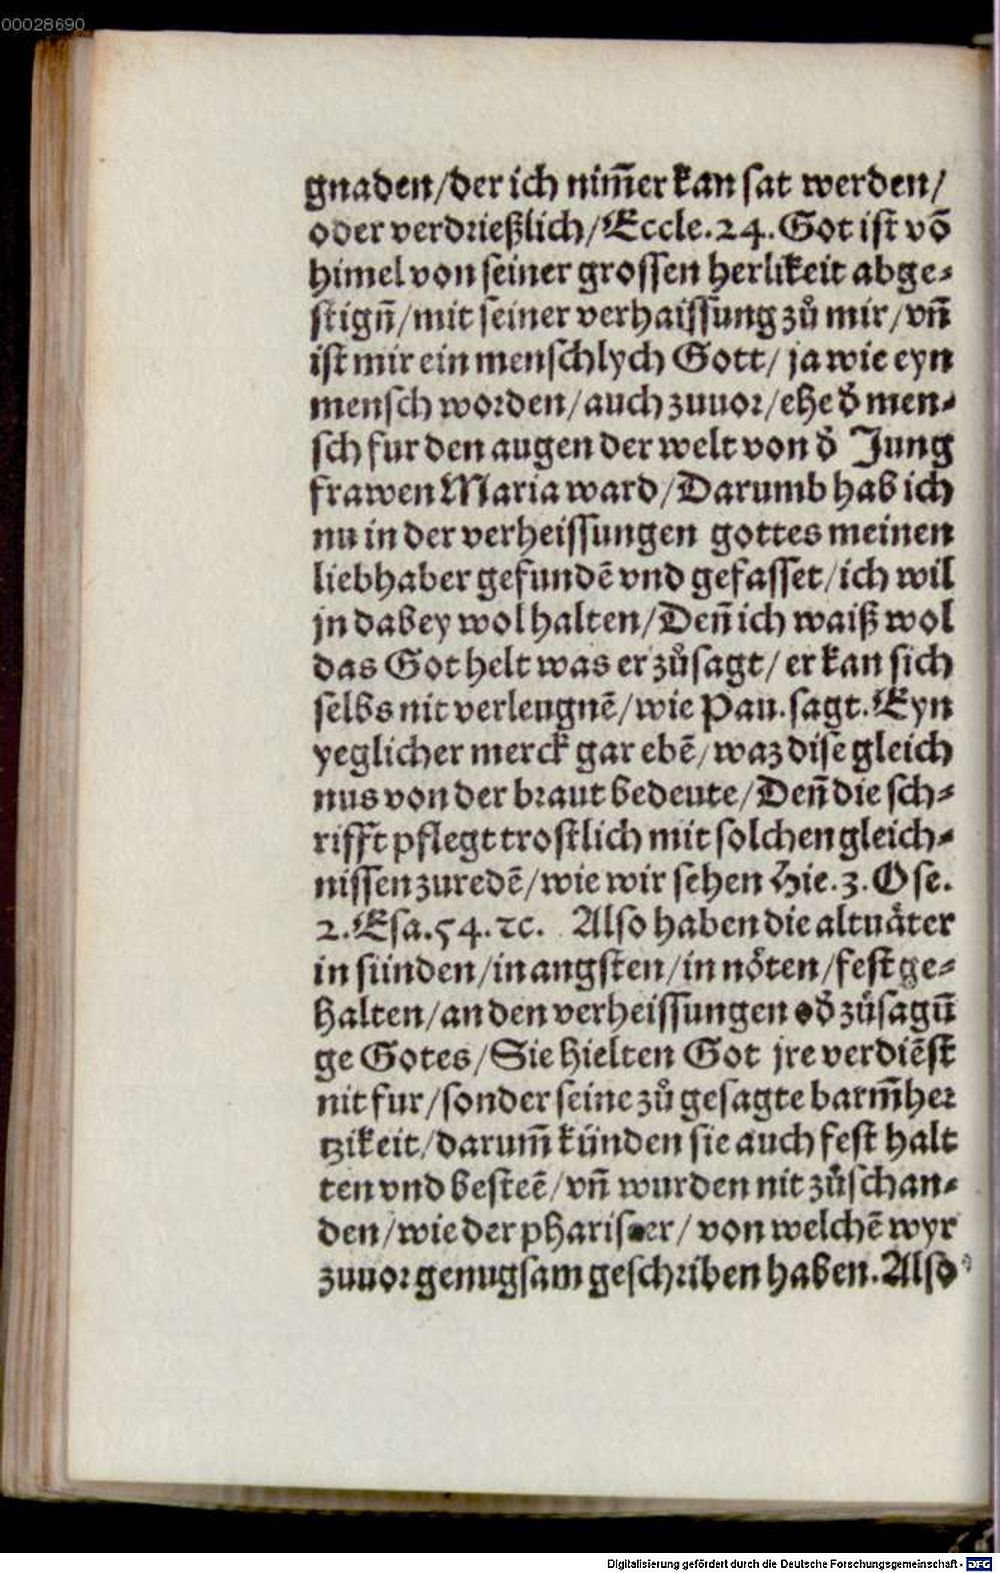 00028690
gnaden/der ich nim̃er kan sat werden/
oder verdrießlich/Eccle.24. Got ist võ
himel von seiner grossen herlikeit abge⸗
stigñ/mit seiner verhaissung zů mir/vñ
ist mir ein menschlych Gott/ ja wie eyn
mensch worden/auch zuuor/ehe d̕ men⸗
sch fur den augen der welt von d̕ Jung
frawen Maria ward/Darumb hab ich
nu in der verheissungen gottes meinen
liebhaber gefundẽ vnd gefasset/ich wil
jn dabey wol halten/Deñ ich waiß wol
das Got helt was er zůsagt/ er kan sich
selbs nit verleugnẽ/wie Pau. sagt. Eyn
yeglicher merck gar ebẽ/waz dise gleich
nus von der braut bedeute/Deñ die sch⸗
rifft pflegt trostlich mit solchen gleich⸗
nissen zuredẽ/wie wir sehen Hie.3. Ose.
2. Esa.54. ꝛc. Also haben die altuåter
in sünden/in angsten/in nöten/fest ge⸗
halten/an den verheissungen od̕ zůsagũ
ge Gotes/Sie hielten Got jre verdiẽst
nit fur/sonder seine zů gesagte barm̃her
tzikeit/darum̃ künden sie auch fest halt
ten vnd besteẽ/vñ wurden nit zůschan⸗
den/wie der phariseer/ von welchẽ wyr
zuuor genugsam geschriben haben. Also
Digitalisierung gefördert durch die Deutsche Forschungsgemeinschaft - DFG